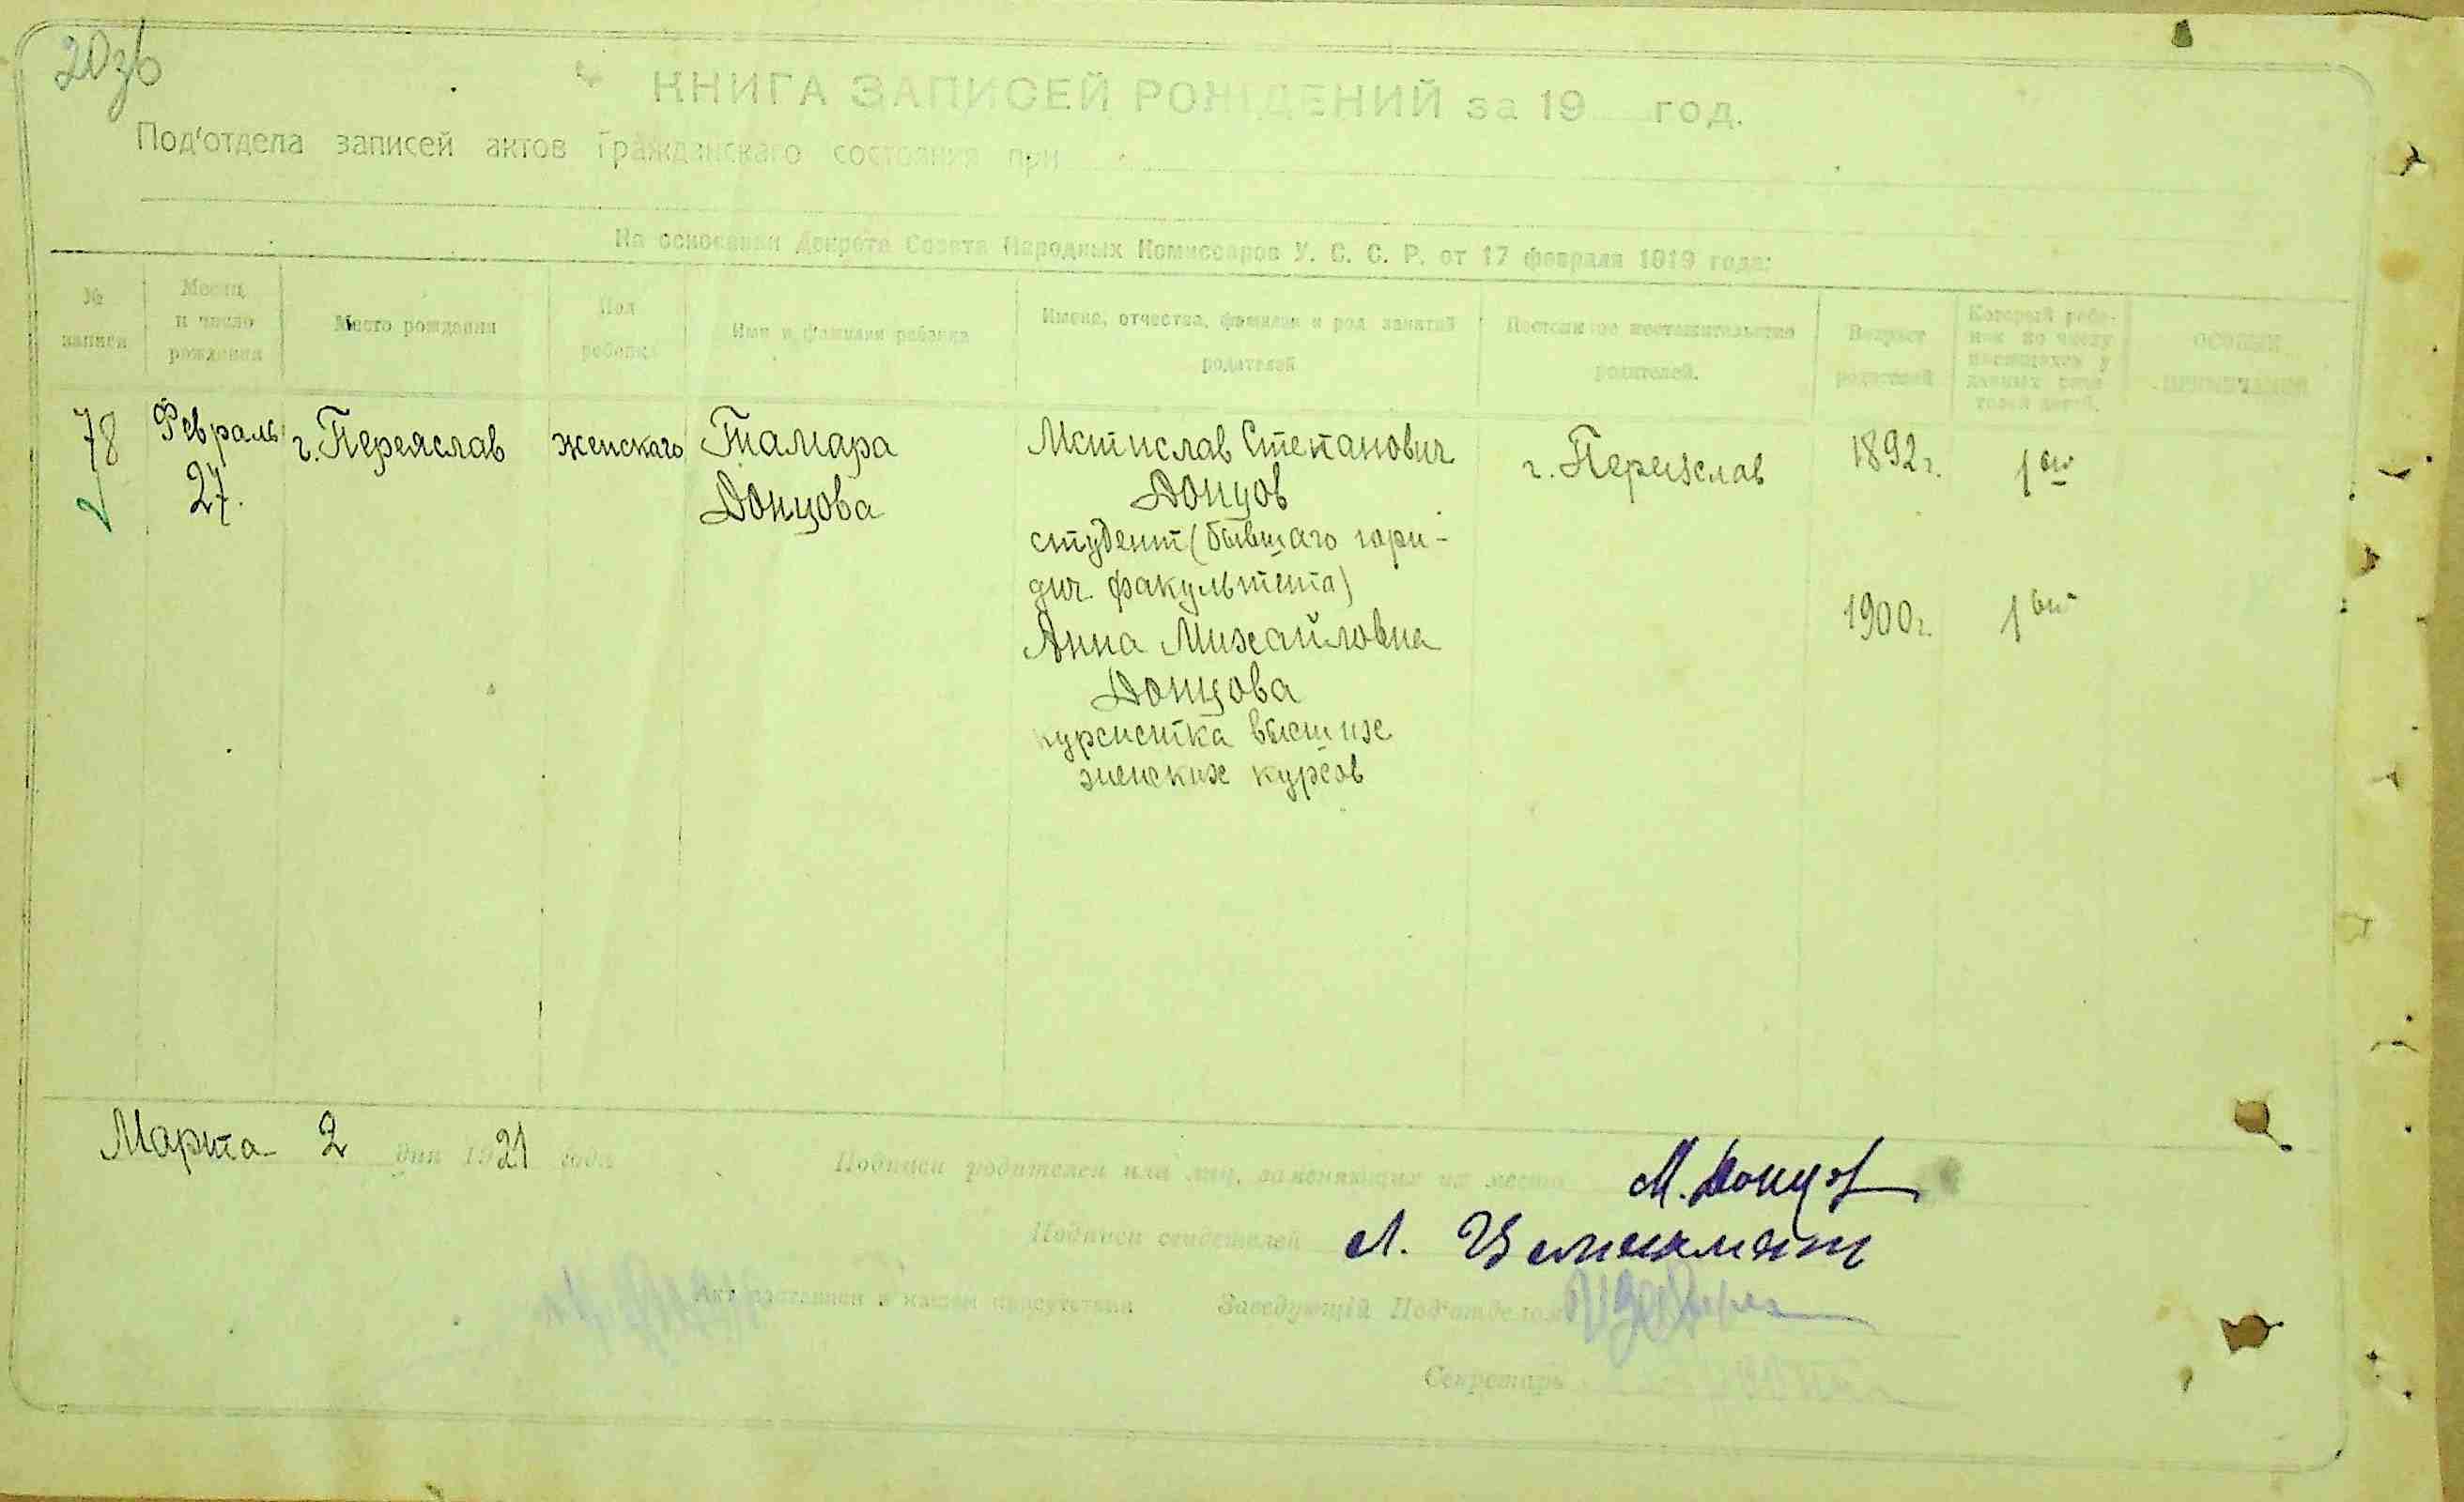 20зв
КНИГА ЗАПИСЕЙ РОЖДЕНИЙ за 19 год.
Под'отдела записей актов Гражданскаго состояния при
На основании Декрета Совета Народных Комиссаров У. С. С. Р. от 17 февраля 1919 года:
№ записи
Месяц и число рождения
Место рождения
Пол ребенка
Имя и фамилия ребенка
Имена, отчества, фамилии и род занятий родителей
Постоянное местожительство родителей.
Возраст родителей
Который ребе-
нок по числу
имеющихся у
данных роди-
телей детей.
ОСОБЫЕ ПРИМЕЧАНИЯ
78 Февраль 27. г. Переяслав женскаго Тамара Донцова
Мстислав Степанович
Донцов
студент (бывшаго юри-
дич. факультета)
Анна Михайловна
Донцова
курсистка высших
женских курсов
г. Переяслав
1892 г. 1ый
1900 г. 1ый
Марта 2 дня 1921 года
Подписи родителей или лиц, заменяющих их место М. Донцов
Подписи свидетелей Л.
Акт составлен в нашем присутствии Заведующий Под'отделом
Секретарь